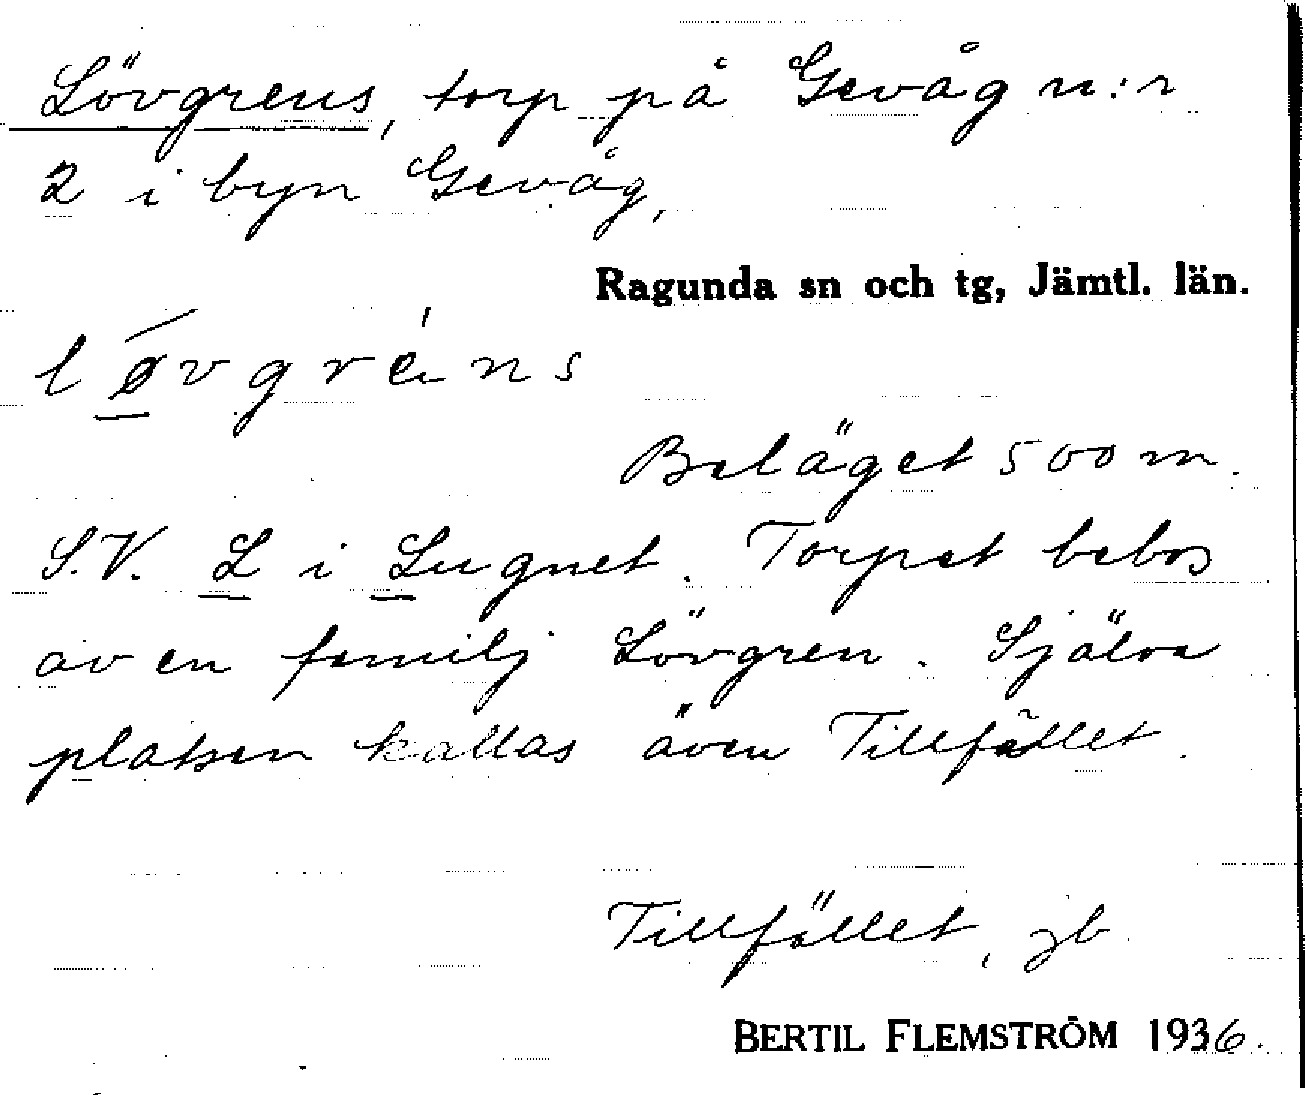 Lövgrens, torp på Gevåg n:r
2 i byn Gevåg,
Ragunda sn och tg, Jämtl. län.
lø̱vgréns
Beläget 500 m.
S.V. L i Lugnet. Torpet bebos
av en familj Lövgren. Själva
platsen kallas även Tillfället.
Tillfället, jb.
BERTIL FLEMSTRÖM 1936.